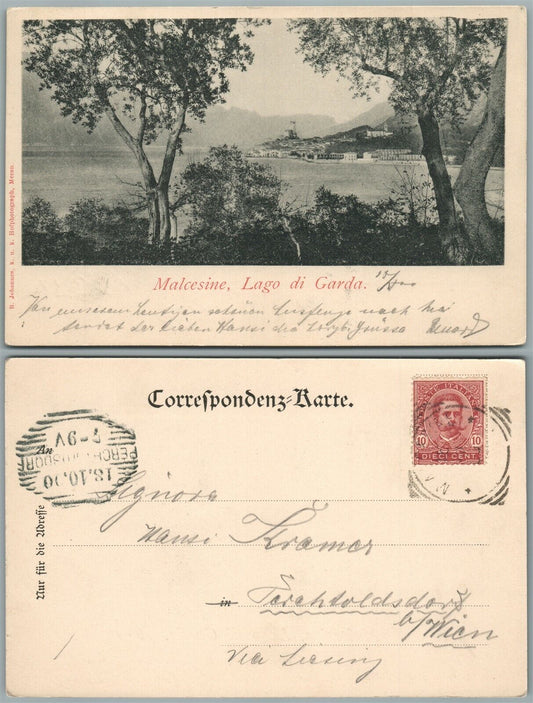 B. Johannes, k. u. k. Hofphotograph, Meran.
Malcesine, Lago di Garda.
Von unserem heutigen schönen Ausfluge nach
sendet der lieben Hansi die Grüsse
Correspondenz-Karte.
POSTE ITALIANE
10 10
DIECI CENT
An
PERCHTOLDSDORF
13.10.00
7-9V
Signora
Hansi Kramer
in Perchtoldsdorf
b/Wien
Via Liesing
Nur für die Adresse